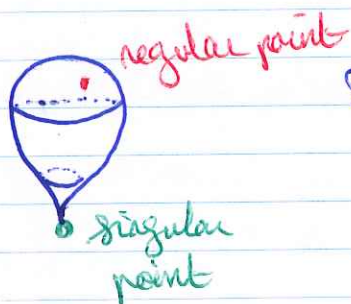 regular point
singular
point